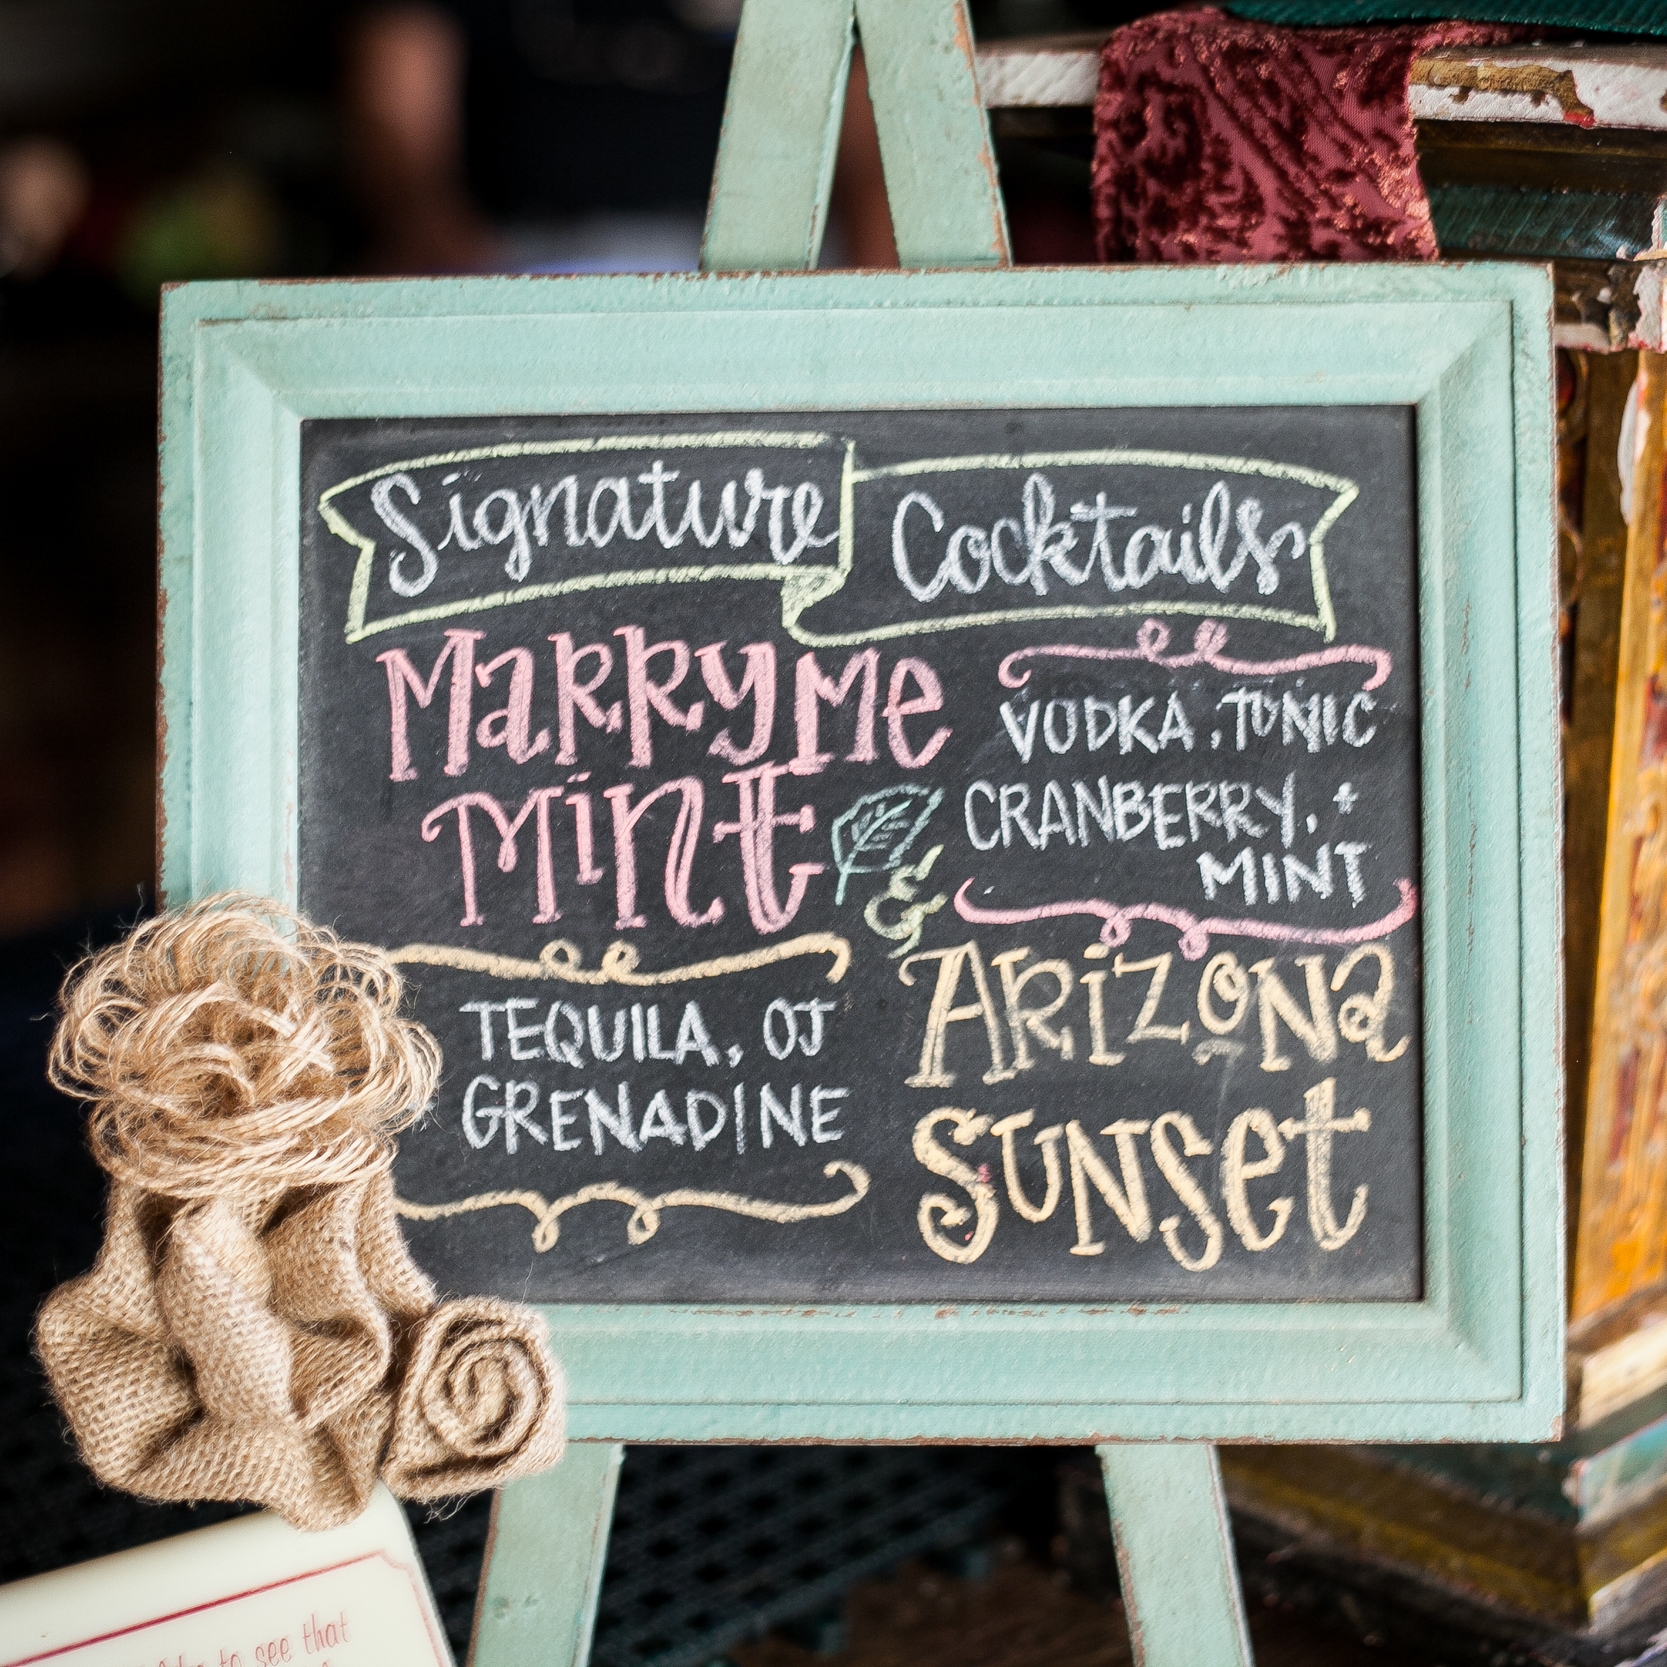 Signature Cocktails
Marry Me
Mint
VODKA, TONIC
CRANBERRY, +
MINT
&
TEQUILA, OJ
GRENADINE
Arizona
Sunset
to see that